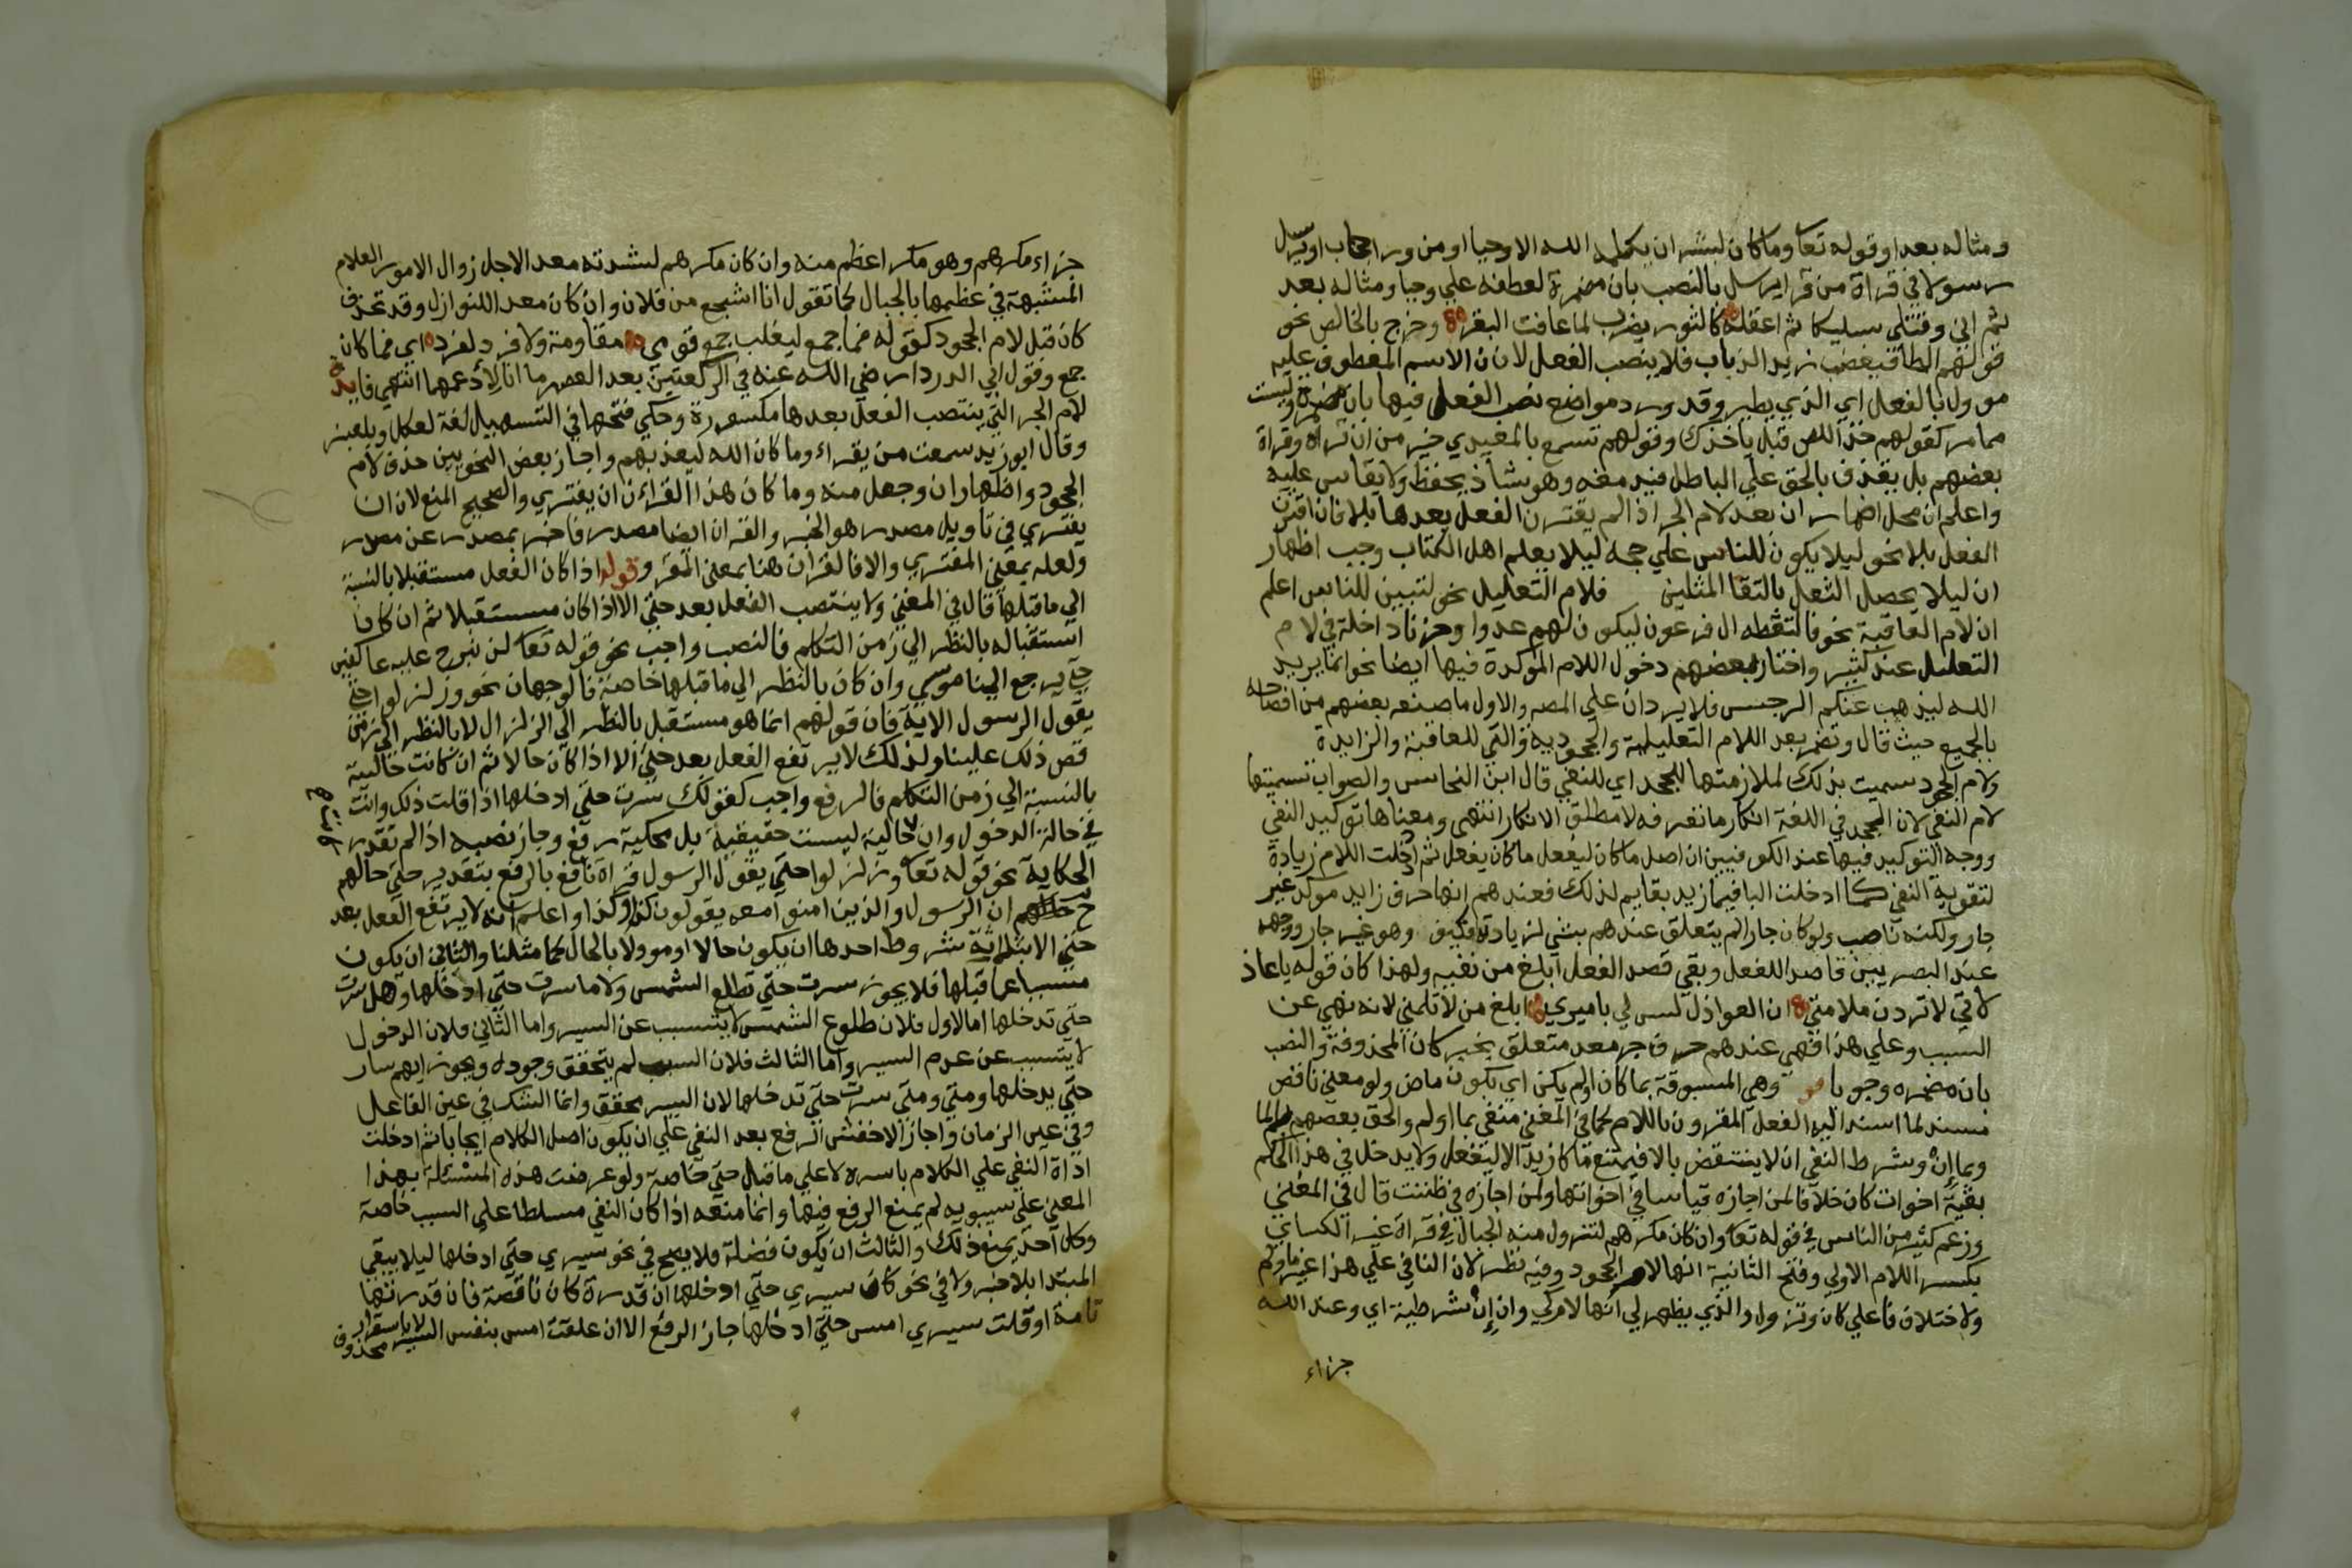 ومثاله بعد او قوله تعا وما كان لبشر ان يكلمه الله الا وحيا او من وراء حجاب او يرسل
رسولا في قراة من قرا يرسل بالنصب بان مضمرة لعطفه علي وحيا ومثاله بعد
ثم اني وقتلي سليكا ثم اعقله كالثور يضرب لما عافت البقر وخرج بالخالص نحو
قولهم الطائر فيغضب زيد الذباب فلا ينصب الفعل لان الاسم المعطوف عليه
موول بالفعل اي الذي يطير وقد ورد مواضع نصب الفعل فيها بان مضمرة وليست
مما مر كقولهم خذ اللص قبل ياخذك وقولهم تسمع بالمعيدي خير من ان تراه وقراة
بعضهم بل نقذف بالحق علي الباطل فيدمغه وهو شاذ يحفظ ولا يقاس عليه
واعلم ان محل اضمار ان بعد لام الجر اذا لم يقترن الفعل بعدها بلا فان اقترن
الفعل بلا نحو ليلا يكون للناس علي حجة ليلا يعلم اهل الكتاب وجب اظهار
ان ليلا يحصل الثقل بالتقا المثلين فلام التعليل نحو لتبين للناس اعلم
ان لام العاقبة نحو فالتقطه ال فرعون ليكون لهم عدوا وحزنا داخلة في لام
التعليل عند كثير واختار بعضهم دخول اللام المؤكدة فيها ايضا نحو انما يريد
الله ليذهب عنكم الرجس فلا يردان علي المصه والاول ما صنعه بعضهم من افصاحه
بالجميع حيث قال وتضمر بعد اللام التعليلية والجحودية والتي للعاقبة والزايدة
ولام الجحود سميت بذلك لملازمتها للجحد اي للنفي قال ابن النحاس والصواب تسميتها
لام النفي لان الجحد في اللغة انكار ما تعرفه لا مطلق الانكار انتهي ومعناها توكيد النفي
ووجه التوكيد فيها عند الكوفيين ان اصل ما كان ليفعل ما كان يفعل ثم ادخلت اللام زيادة
لتقوية النفي كما ادخلت البا فيما زيد بقايم لذلك فعندهم انها حرف زايد موكد غير
جار ولكنه ناصب ولو كان جارا لم يتعلق عندهم بشي لزيادته فكيف وهو غير جار ووجهه
عند البصريين قاصدا للفعل ونفي قصد الفعل ابلغ من نفيه ولهذا كان قوله يا عاذ
لاتي لا تردن ملامتي ان العواذل لسن لي باميري ابلغ من لا تلمني لانه نهي عن
السبب وعلي هذا فهي عندهم حرف جر معد متعلق بخبر كان المحذوفة والنصب
بان مضمره وجوبا وهي المسبوقة بما كان او لم يكن اي بكون ماض ولو معني ناقص
مسند لما اسند اليه الفعل المقرون باللام كما في المغني منفي بما او لم والحق بعضهم بلما
وبما إن وشرط النفي ان لا ينتقض بالا فيمتنع ما كان زيد الا ليفعل ولا يدخل في هذا الحكم
بقية اخوات كان خلافا لمن اجازه قياسا في اخواتها ولمن اجازه في ظننت قال في المغني
وزعم كثير من الناس في قوله تعا وان كان مكرهم لتزول منه الجبال في قراة غير الكساي
بكسر اللام الاولي وفتح الثانية انها لام الجحود وفيه نظر لان النافي علي هذا غير ما ولم
ولاختلاف فاعلي كان وتزول والذي يظهر لي انها لام كي وان إن شرطية اي وعند الله
جزاء
جزاء مكرهم وهو مكر اعظم منه وان كان مكرهم لشدته معد الاجل زوال الامور العظام
المشبهة في عظمها بالجبال كما تقول انا اشجع من فلان وان كان معد اللنوازل وقد تحذف
كان قبل لام الجحود كقوله فما جمع ليغلب جمع قومي مقاومة ولا فرد لفرد اي فما كان
جمع وقول ابي الدرداء رضي الله عنه في الركعتين بعد العصر ما انا لأدعهما انتهي فايدة
لام الجر التي ينتصب الفعل بعدها مكسورة وحكي فتحها في التسهيل لغة لعكل وبلعنبر
وقال ابو زيد سمعت من يقراء وما كان الله ليعذبهم واجاز بعض النحويين حذف لام
الجحود واظهار ان وجعل منه وما كان هذا القراءن ان يفتري والصحيح المنع لان ان
يفتري في تاويل مصدر هو الخبر والقران ايضا مصدر فاخبر بمصدر عن مصدر
ولعله بمعني المفتري والا فالقران هنا بمعني المقرو قوله اذا كان الفعل مستقبلا بالنسبة
الي ما قبلها قال في المغني ولا ينتصب الفعل بعد حتي الا اذا كان مستقبلا ثم ان كان
استقباله بالنظر الي زمن التكلم فالنصب واجب نحو قوله تعا لن نبرح عليه عاكفين
حتي يرجع الينا موسي وان كان بالنظر الي ما قبلها خاصة فالوجهان نحو وزلزلوا حتي
يقول الرسول الاية فان قولهم انما هو مستقبل بالنظر الي الزلزال لا بالنظر الي زمن
قص ذلك علينا ولذلك لا يرتفع الفعل بعد حتي الا اذا كان حالا ثم ان كانت حاليته
بالنسبة الي زمن التكلم فالرفع واجب كقولك سرت حتي ادخلها اذا قلت ذلك وانت
في حالة الدخول وان حاليته ليست حقيقية بل محكية رفع وجاز نصبه اذا لم تقدر
الحكاية نحو قوله تعا وزلزلوا حتي يقول الرسول قراة نافع بالرفع بتقدير حتي حالهم
ح ان الرسول والذين امنوا معه يقولون كذا وكذا واعلم انه لا يرتفع الفعل بعد
حتي الا بثلاثة شروط احدها ان يكون حالا او موولا بالحال كما مثلنا والثاني ان يكون
مسببا عما قبلها فلا يجوز سرت حتي تطلع الشمس ولا ما سرت حتي ادخلها وهل سرت
حتي تدخلها اما الاول فلان طلوع الشمس لا يتسبب عن السير واما الثاني فلان الدخول
لا يتسبب عن عدم السير واما الثالث فلان السبب لم يتحقق وجوده ويجوز ايهم سار
حتي يدخلها ومتي ومتي سرت حتي تدخلها لان السير محقق وانما الشك في عين الفاعل
وفي عين الزمان واجاز الاخفش الرفع بعد النفي علي ان يكون اصل الكلام ايجابا ثم ادخلت
اداة النفي علي الكلام باسره لا علي ما قبل حتي خاصة ولو عرضت هذه المسئلة بهذا
المعني علي سيبويه لم يمنع الرفع فيها وانما منعه اذا كان النفي مسلطا علي السبب خاصة
وكل احد يمنع ذلك والثالث ان يكون فضلة فلا يصح في نحو سيري حتي ادخلها ليلا يبقي
المبتدا بلا خبر ولا في نحو كان سيري حتي ادخلها ان قدرة كان ناقصة فان قدرتها
تامة او قلت سيري امس حتي ادخلها جاز الرفع الا ان علقت امس بنفس السير لا باستقرار
محذوف